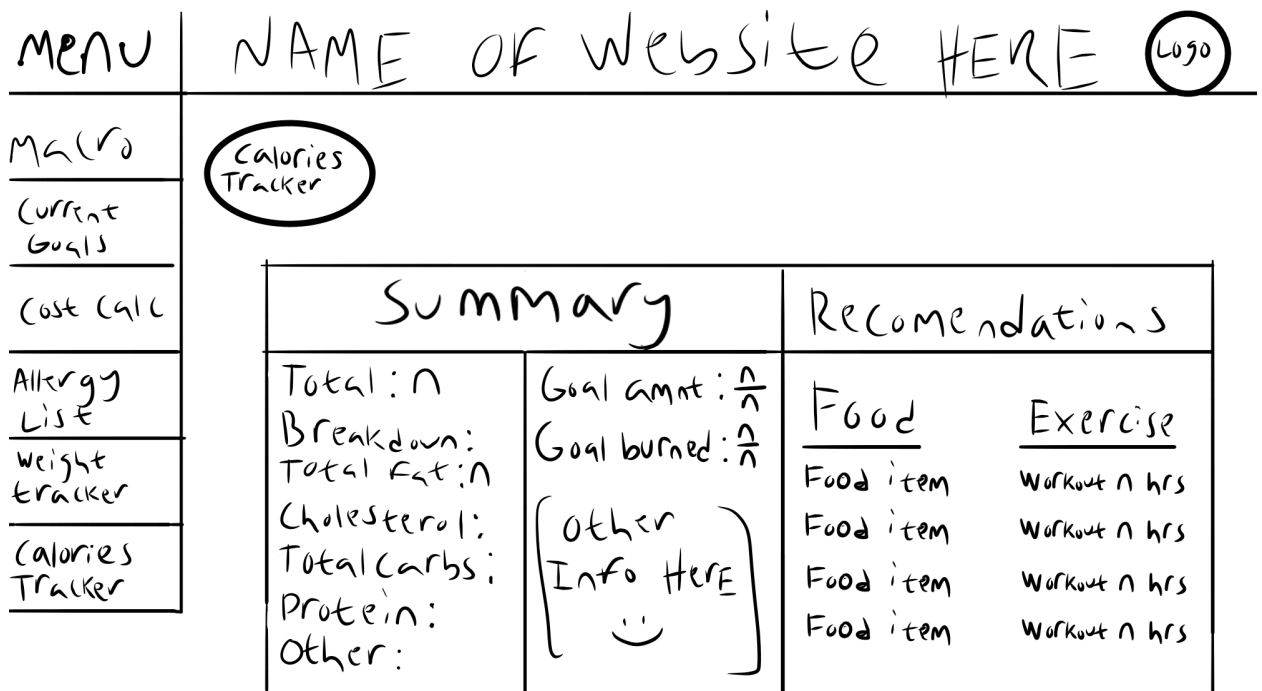 Menu
NAME OF Website HERE
Logo
Macro
Current
Goals
Cost Calc
Allergy
List
Weight
tracker
Calories
Tracker
Calories
Tracker
Summary
Total: n
Breakdown:
Total Fat: n
Cholesterol:
Total Carbs:
Protein:
Other:
Goal amnt: n/n
Goal burned: n/n
Other
Info HerE
Recomendations
Food
Food item
Food item
Food item
Food item
Exercise
Workout n hrs
Workout n hrs
Workout n hrs
Workout n hrs